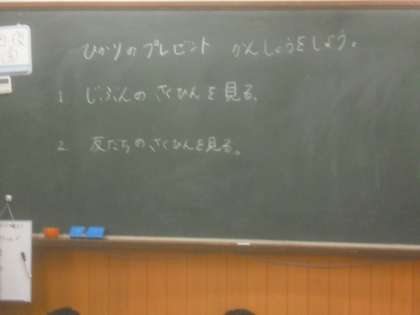 ひかりのプレゼント かんしょうをしよう。
1 じぶんの さくひんを見る。
2 友だちの さくひんを見る。